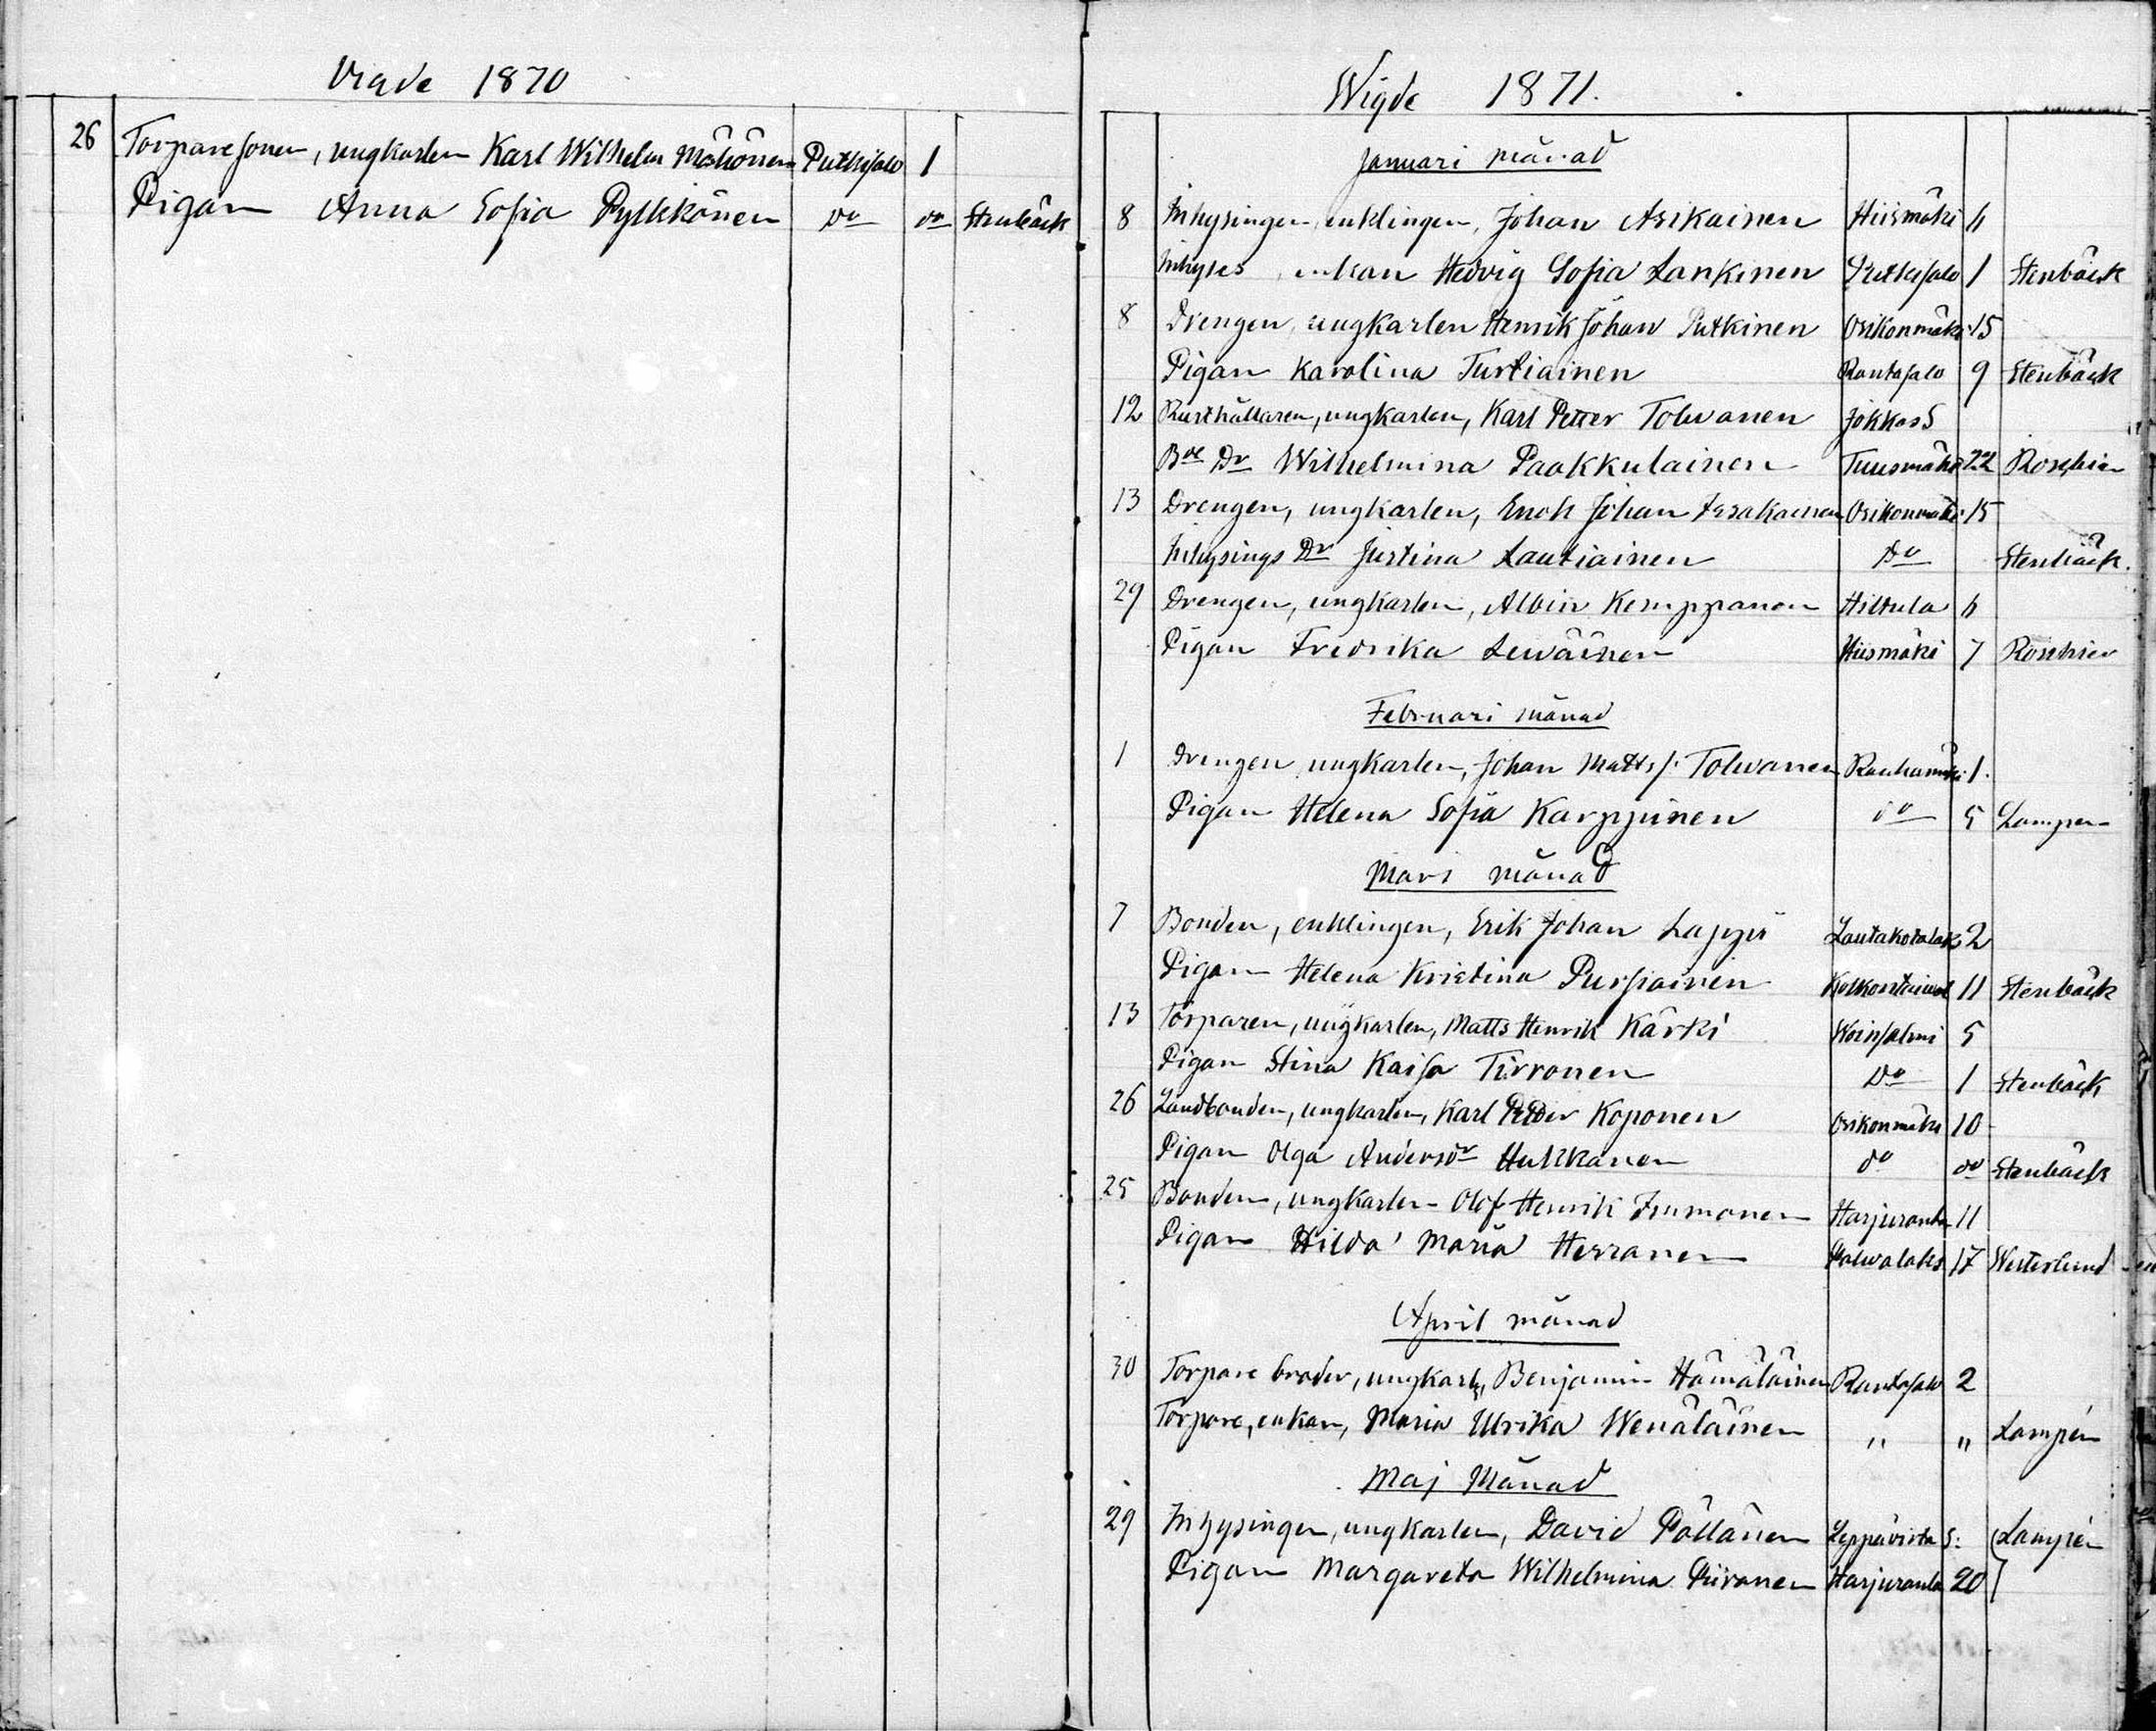 Vigde 1870
26 Torparesonen, ungkarlen Karl Wilhelm Möhönen Putkisalo 1
Pigan Anna Sofia Pylkkönen Do do Stenbäck
Wigde 1871.
Januari månad
8 Inhysingen, enklingen, Johan Asikainen Hiismäki 4
Inhyses enkan Hedvig Sofia Lankinen Putkisalo 1 Stenbäck
8 Drengen, ungkarlen Henrik Johan Putkinen Osikonmäki 15
Pigan Karolina Turtiainen Rantasalo 9 Stenbäck
12 Rusthållaren, ungkarlen, Karl Petter Tolwanen Jokkas 5
Bde Dr Wilhelmina Paakkulainen Tuusmäki 22 Roschier
13 Drengen, ungkarlen, Enok Johan Osikonmäki 15
Inhysings Dr Justina Lautiainen Do Stenbäck.
29 Drengen, ungkarlen, Albin Kemppanen Hiltula 4
Pigan Fredrika Lewäinen Hiismäki 7 Roschier
Februari månad
1 Drengen ungkarlen, Johan Matts s. Tolwanen Rauhamäki 1.
Pigan Helena Sofia Karppinen do 5 Lampen
Mars månad
7 Bonden, enklingen, Erik Johan Lappi Lautakotalaks 2
Pigan Helena Kristina Pursiainen 11 Stenbäck
13 Torparen, ungkarlen, Matts Henrik Kärki Woinsalmi 5
Pigan Stina Kaisa Tirronen Do 1 Stenbäck
26 Landbonden, ungkarlen, Karl Petter Koponen Osikonmäki 10
Pigan Olga Andersdr Hukkanen do do Stenbäck
25 Bonden, ungkarlen Olof Henrik Immonen Harjuranta 11
Pigan Hilda Maria Herranen 17 Westerlund
April månad
30 Torpare broder, ungkarlen, Benjamin Hämäläinen Rantasalo 2
Torpare, enkan, Maria Ulrika Wenäläinen " " Lampén
Maj Månad
29 Inhysingen, ungkarlen, David Pöllänen Leppävirta S: Lampén
Pigan Margareta Wilhelmina Piironen Harjuranta 20